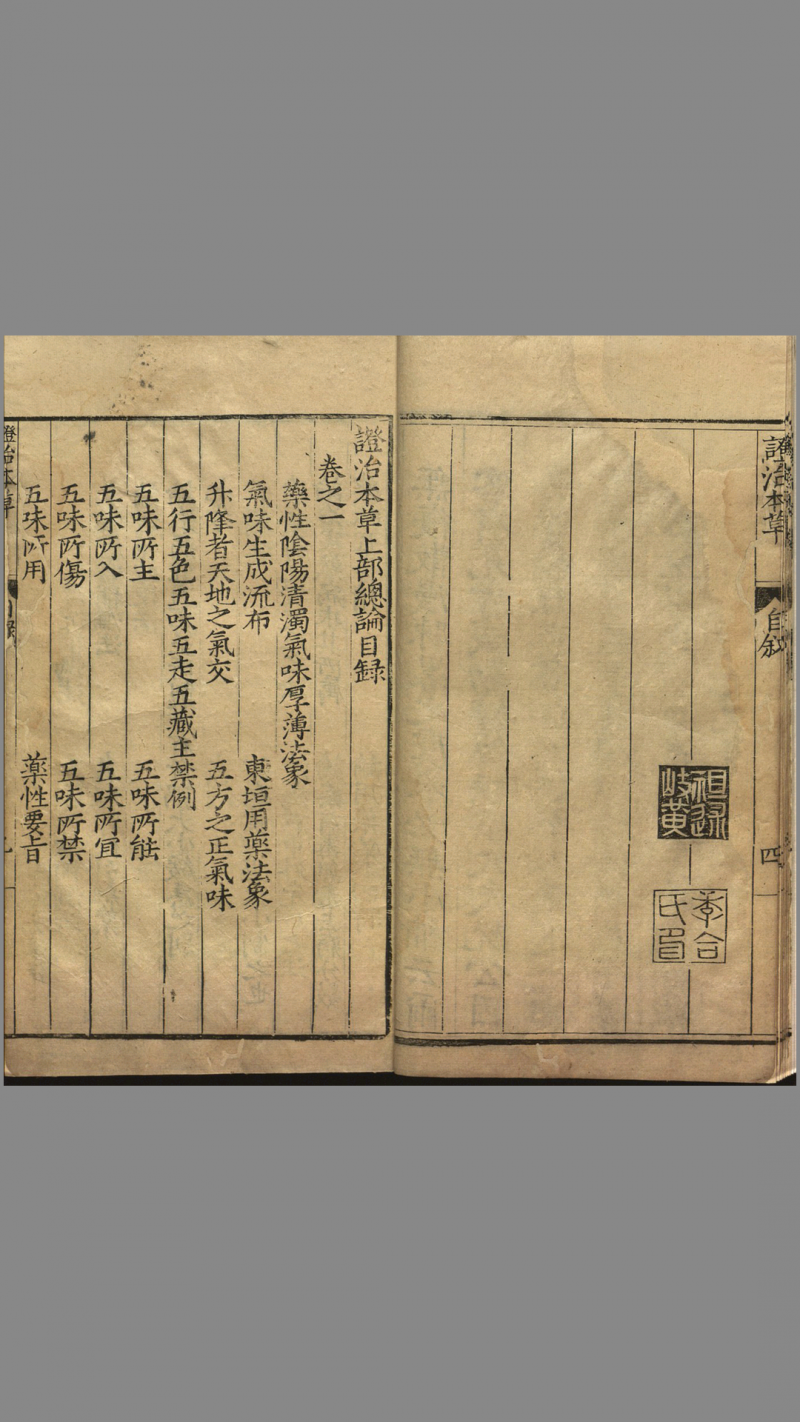 證治本草
自叙
四
祖述
岐黃
氏
證治本草上部總論目録
卷之一
藥性陰陽清濁氣味厚薄法象
氣味生成流布　東垣用藥法象
升降者天地之氣交　五方之正氣味
五行五色五味五走五藏主禁例
五味所主　五味所能
五味所入　五味所宜
五味所傷　五味所禁
五味所用　藥性要旨
證治本草